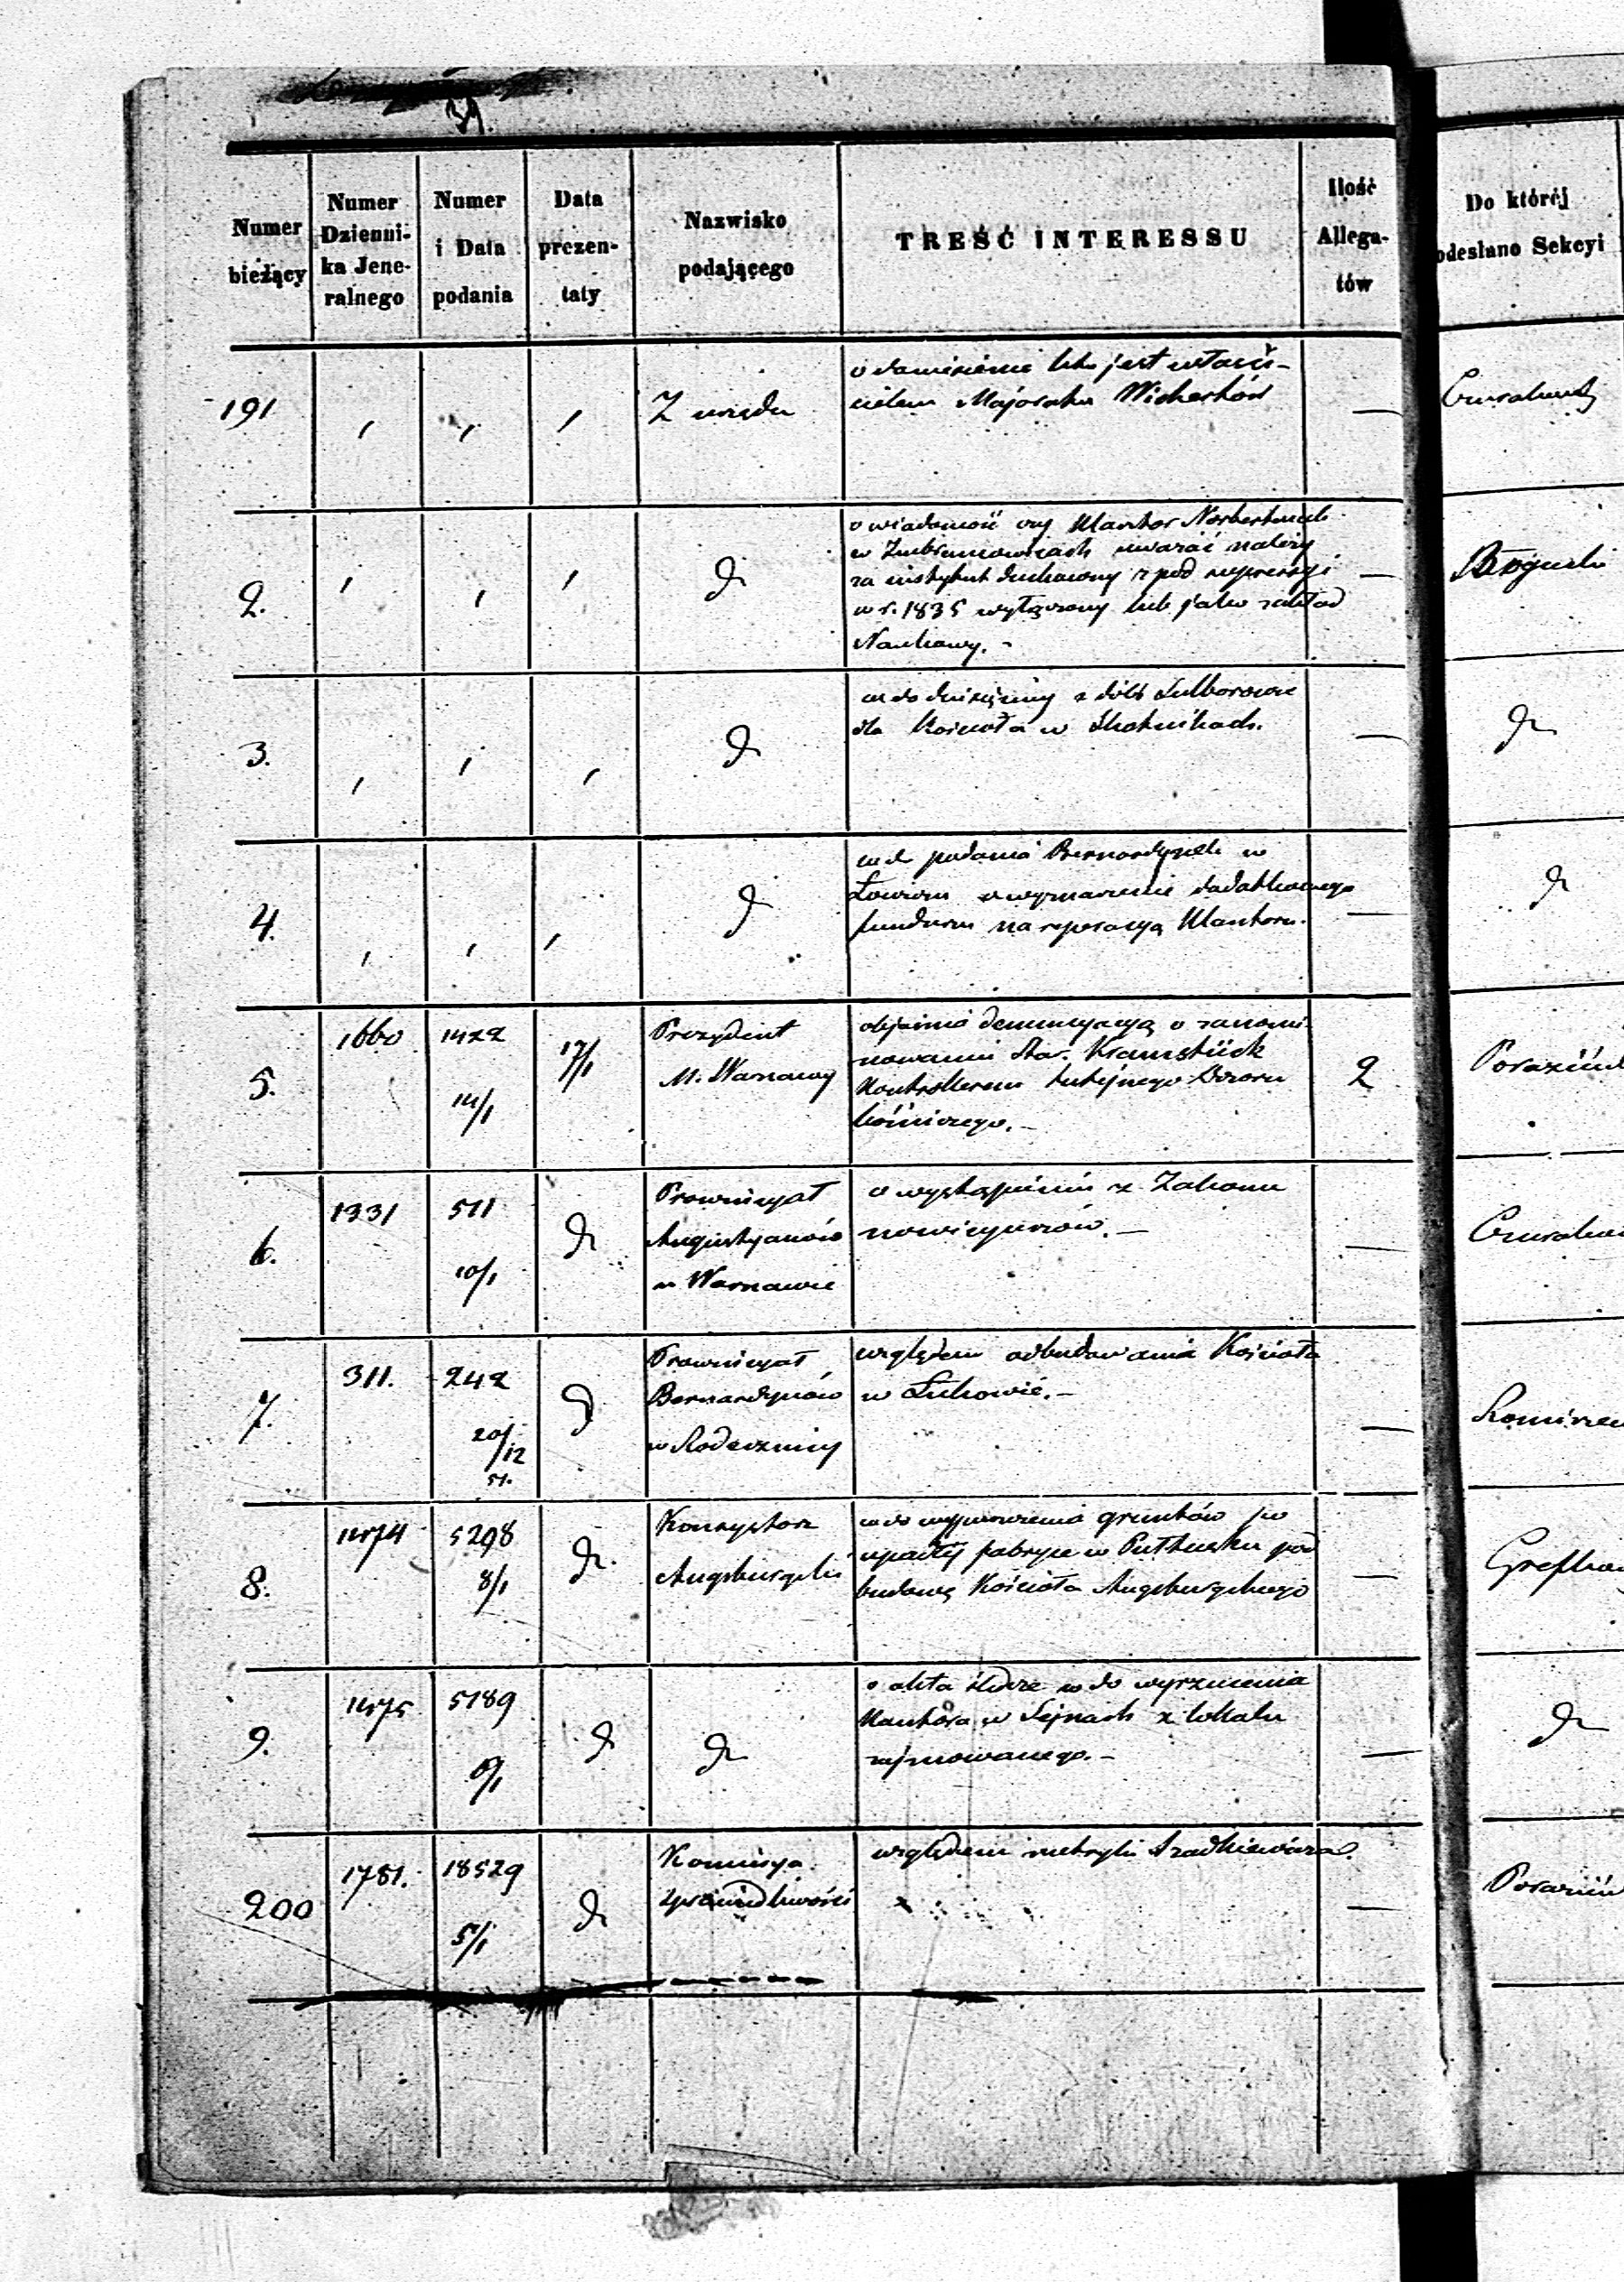 39.
Numer bieżący
Numer Dzienni- ka Jene- ralnego
Numer i Data podania
Data prezen- taty
Nazwisko podającego
TREŚĆ INTERESSU
Ilość Allega- tów
Do któréj odesłano Sekcyi
191 Z urzędu
o doniesienie kto jest właści-
cielem Majoratu
2. Dr
o wiadomość czy Klasztor Norbertanek
w Imbramowicach uważać należy
za instytut duchowny z pod supressyi
w r. 1835 wyłączony lub jako zakład
Naukowy. -
3. Dr
dziesięciny z dóbr
dla Kościoła w Skotnikach.
Dr
4. Dr
podania Bernardynek w
Łowiczu o wyznaczenie dodatkowego
funduszu na reperacyą Klasztoru.
Dr
5. 1660 1422 14/1 17/1
Prezydent
M. Warszawy
objaśnia denuncyacyą o zanomi-
nowaniu Star. Kramsztück
Kontrollerem tutejszego Dozoru
bóźniczego. -
2
6. 1331 511 10/1 Dr
Prowincyał
Augustyanów
w Warszawie
o wystąpieniu z Zakonu
nowicyuszów. -
7. 311. 242 20/12 51. Dr
Prowincyał
Bernardynów
w Radecznicy
względem odbudowania Kościoła
w Łukowie. -
8. 1474 5298 8/1 Dr.
Konsystorz
Augsburgski
gruntów po
upadłej fabryce w Pułtusku pod
budowę Kościoła Augsburgskiego
9. 1475 5189 Dr Dr
o akta śledcze w do wyrzucenia
Kantora w Sejnach z lokalu
zajmowanego. -
Dr
200 1781. 18529 5/1 Dr
Komissya
Sprawiedliwości
względem metryki Szadkiewicza.